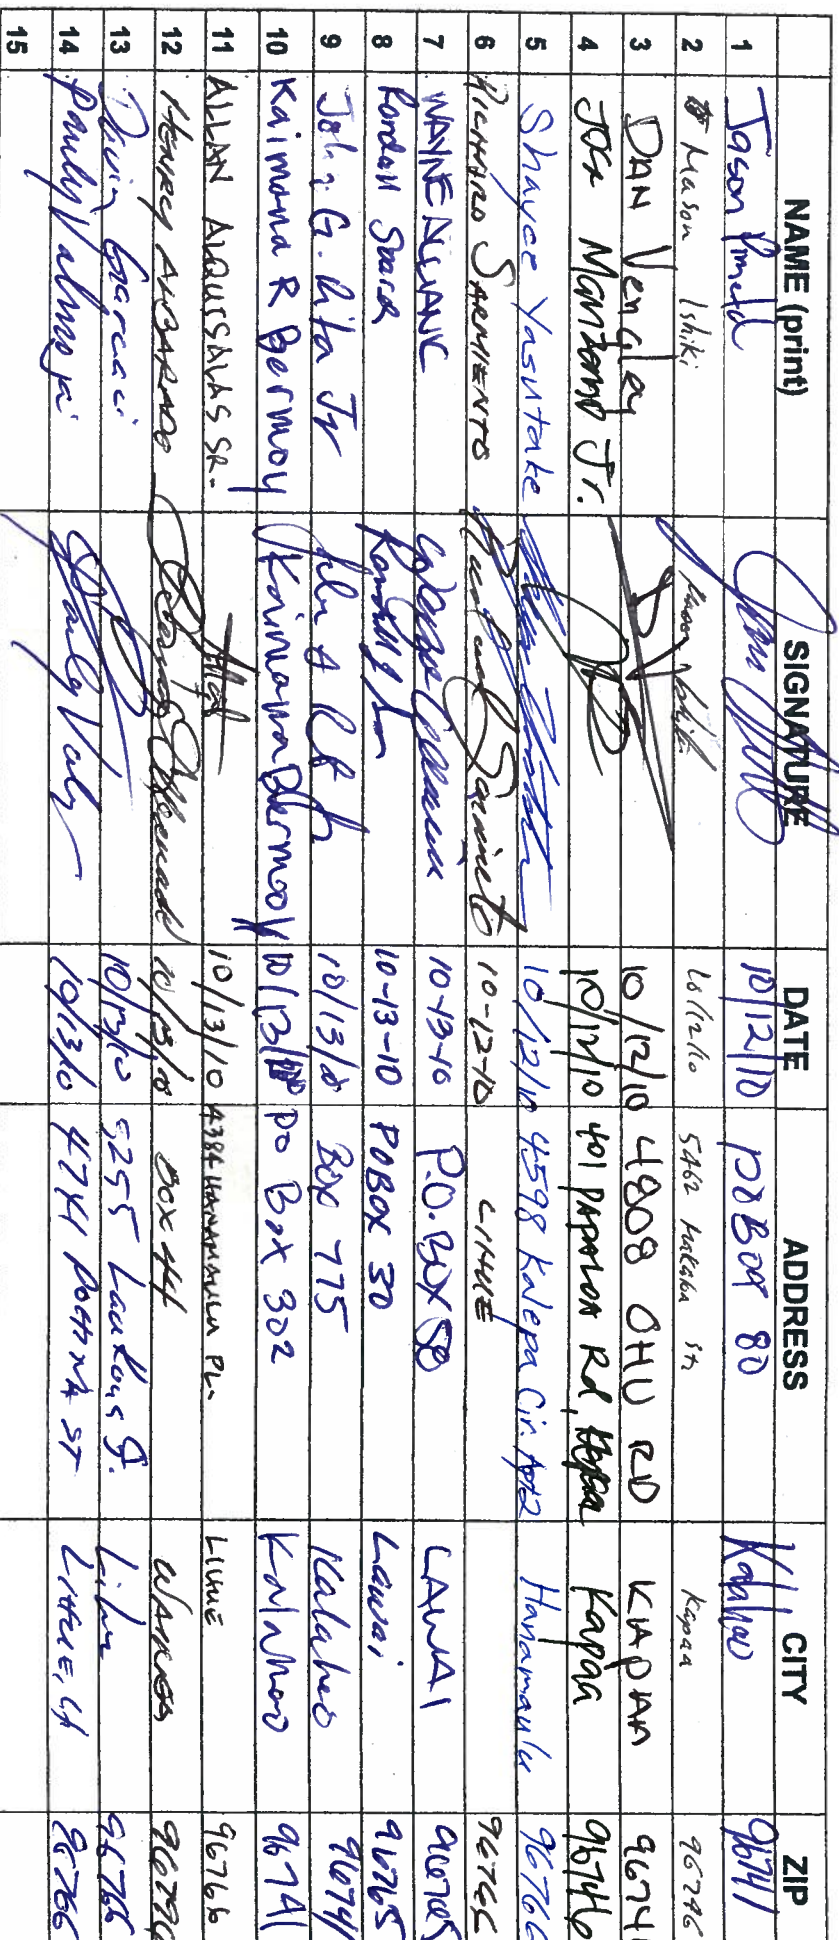 NAME (print) SIGNATURE DATE ADDRESS CITY ZIP
1 Jason 10/12/10 PO Box 80 Kalaheo 96741
2 Mason Ishiki 10/12/10 5462 St Kapaa 96746
3 DAN Venglay 10/12/10 4808 OHU RD KAPAA 9674
4 Jose Manzano Jr. 10/12/10 401 PAPALOA Rd, Kapaa 96746
5 Shaycee Yasutake 10/12/10 4598 Kalepa Cir. Apt 2 Hanamaulu 96766
6 RICHARD SARMIENTO Richard Sarmiento 10-12-10 LIHUE 96766
7 WAYNE 10-13-10 P.O. BOX 50 LAWAI 96765
8 10-13-10 PO BOX 30 Lawai 96765
9 John G. Rita Jr 10/13/0 Box 775 Kalaheo 96741
10 Kaimana R Bermoy Kaimana Bermoy 10/13/10 PO Box 302 Kalaheo 96741
11 ALLAN ALQUISALAS SR. 10/13/10 4384 HANAMAULU PL. LIHUE 96766
12 HENRY 10/13/10 BOX 44 96796
13 10/13/10 5255 St. Lihu 96766
14 Pauly Valmoja Pauly Val 10/13/10 4741 ST LIHUE, 96766
15